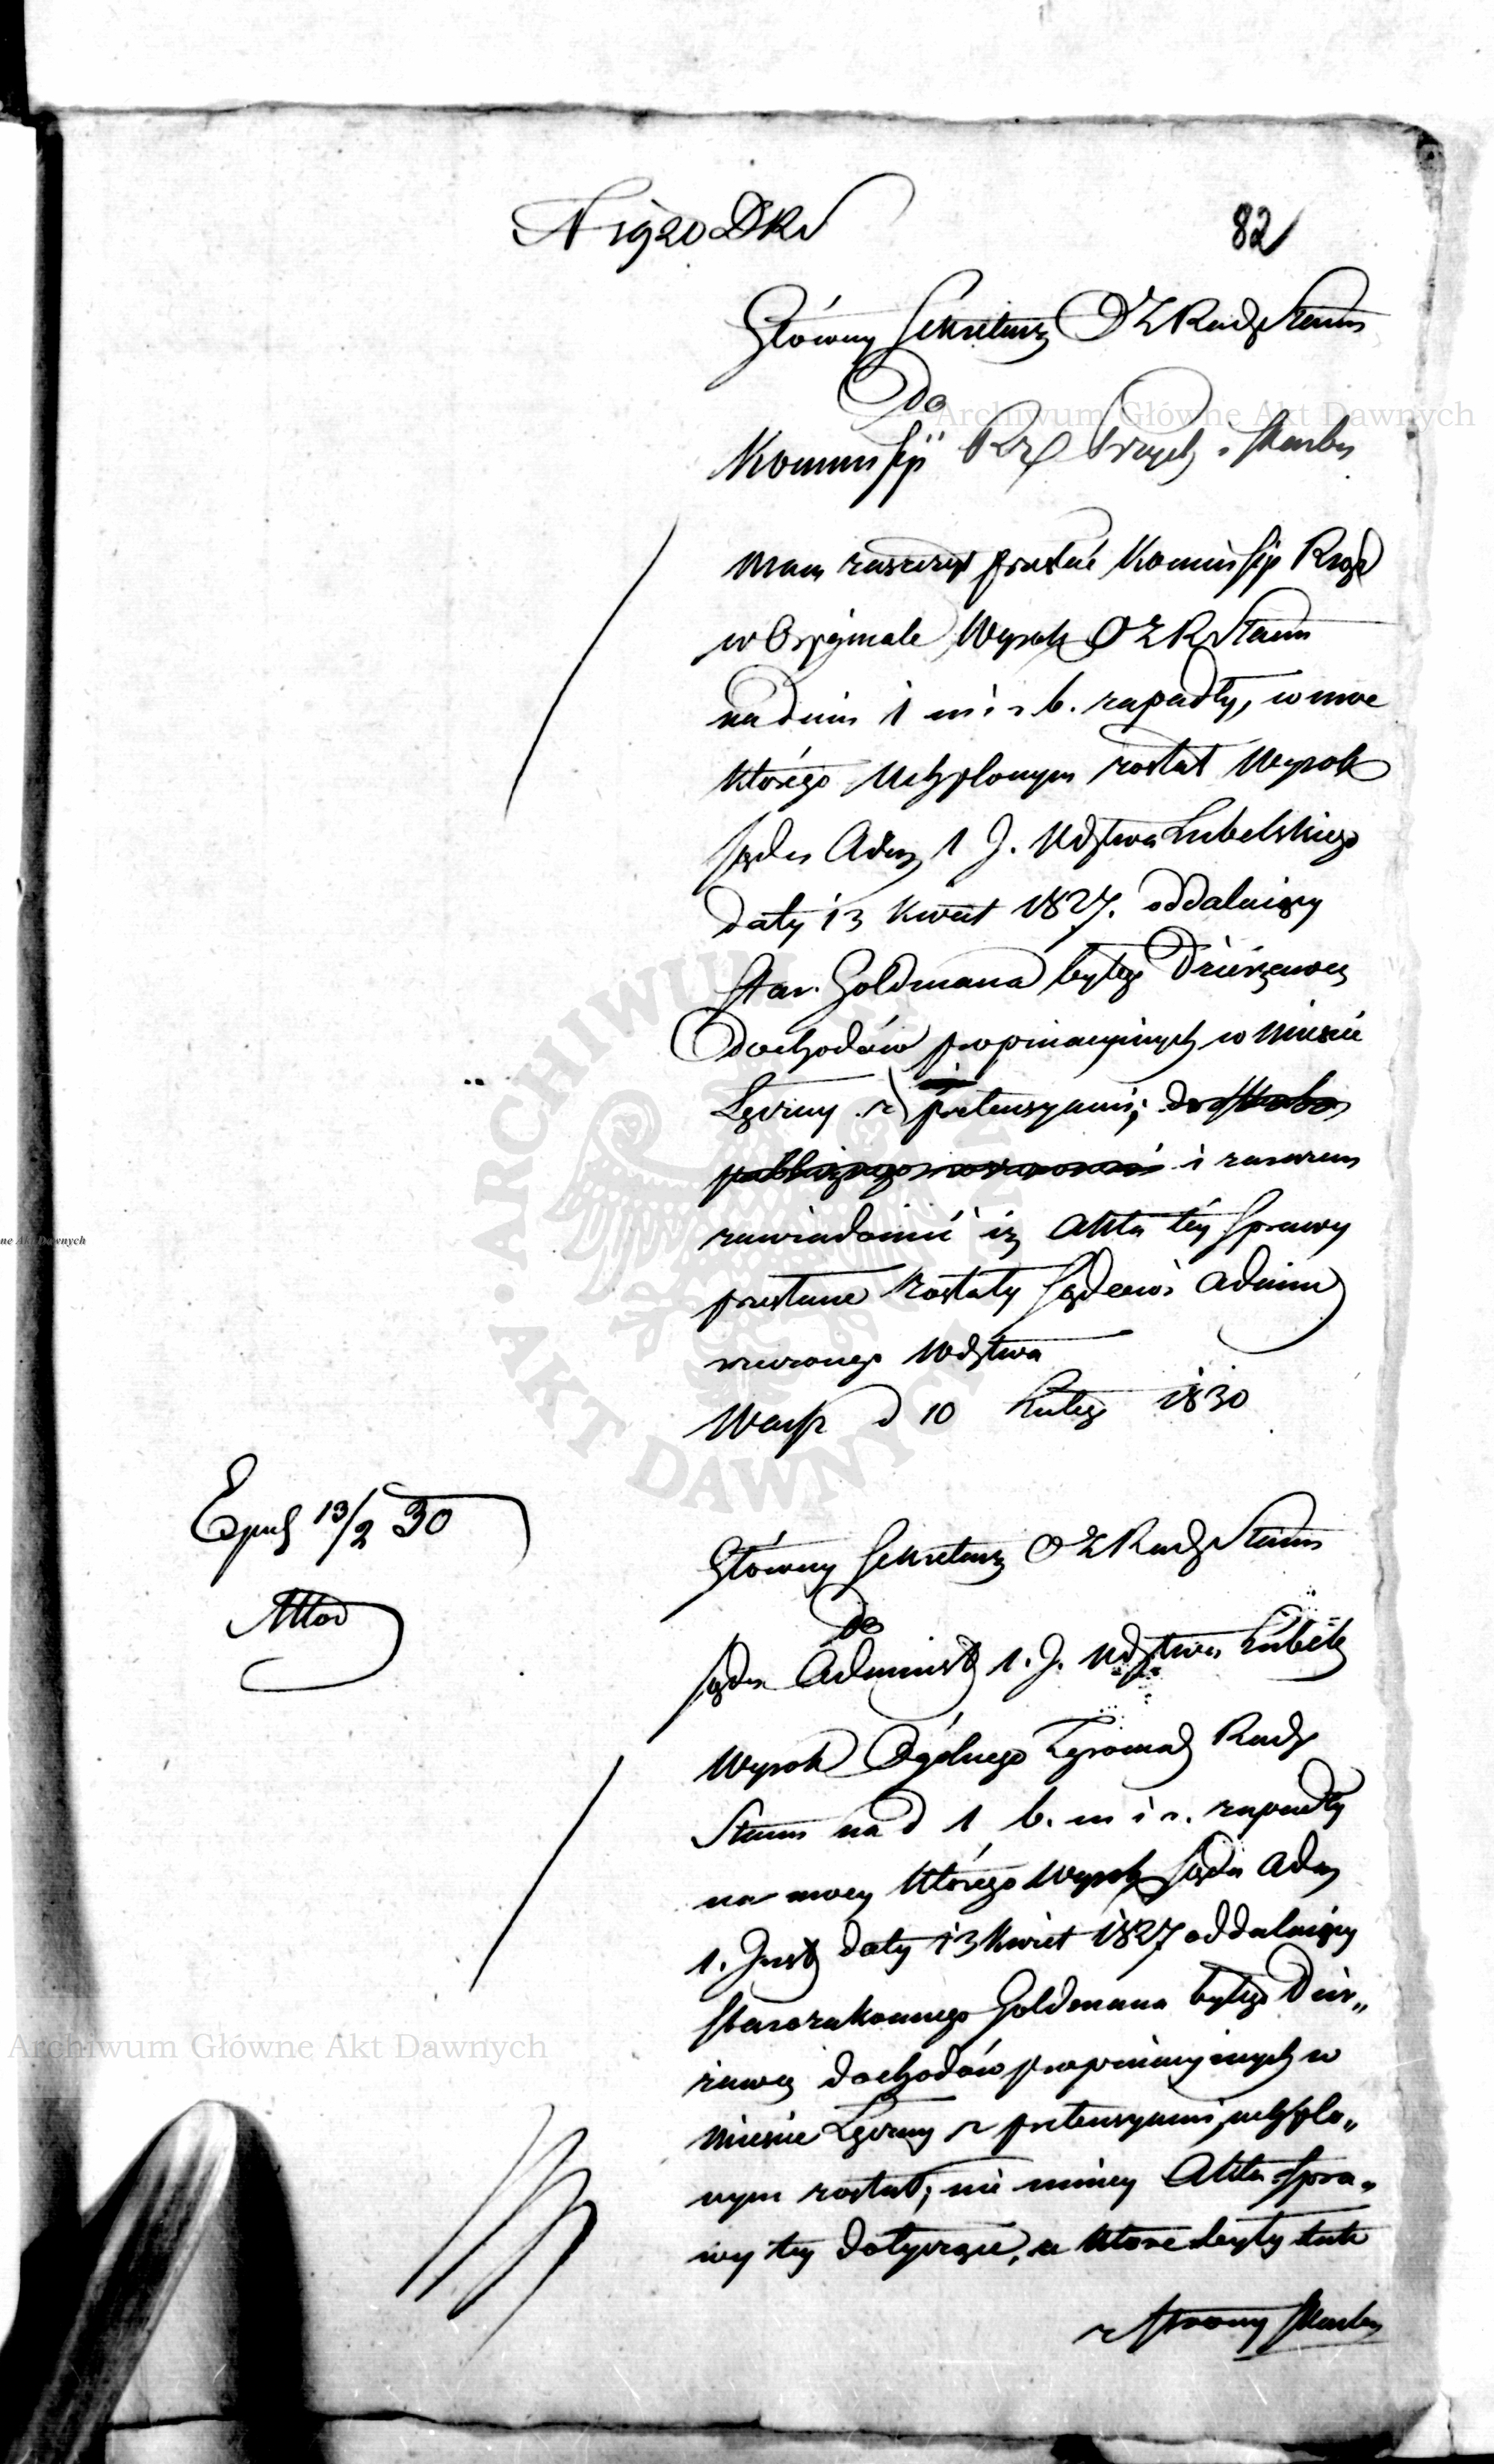 N 1920 DRS
82
Główny Sekretarz O Z Rady Stanu
Do
Kommissji Rz Przych i Skarbu
Mam zaszczyt przesłać Kommissji Rząd
w Oryginale Wyrok O Z R Stanu
na dniu 1 m i r b. zapadły, w moc
którego uchylonym został Wyrok
Sądu Adm 1 J. Wdztwa Lubelskiego
daty 13 Kwiet 1827. oddalaiący
Star. Goldmana byłego Dzierzawcę
Dochodów propinacyinych w Mieście
Łęczny z pretensyami; do Skarbu
publicznego i zarazem
zawiadomić iż Akta téy Sprawy
przesłane zostały Sądowi Admin
rzeczonego Wdztwa
Warsz d 10 Lutego 1830
Exped 13/2 30
Główny Sekretarz O Z Rady Stanu
do
Sądu Administ 1. J. Wdztwa Lubels
Wyrok Ogólnego Zgromadz Rady
Stanu na d 1 b. m i r. zapadły
na mocy którego Wyrok Sądu Adm
1. Inst daty 13 Kwiet 1827 oddalaiący
Starozakonnego Goldmana byłego Dzier„
żawcę dochodów propinacyinych w
Mieście Łęczny z pretensyami, uchylo„
nym został; nie mniey Akta Spra„
wy téy dotyczące, a które były tak
z strony Skarbu
Archiwum Główne Akt Dawnych
Archiwum Główne Akt Dawnych
ne Akt Dawnych
ARCHIWUM GŁÓWNE AKT DAWNYCH